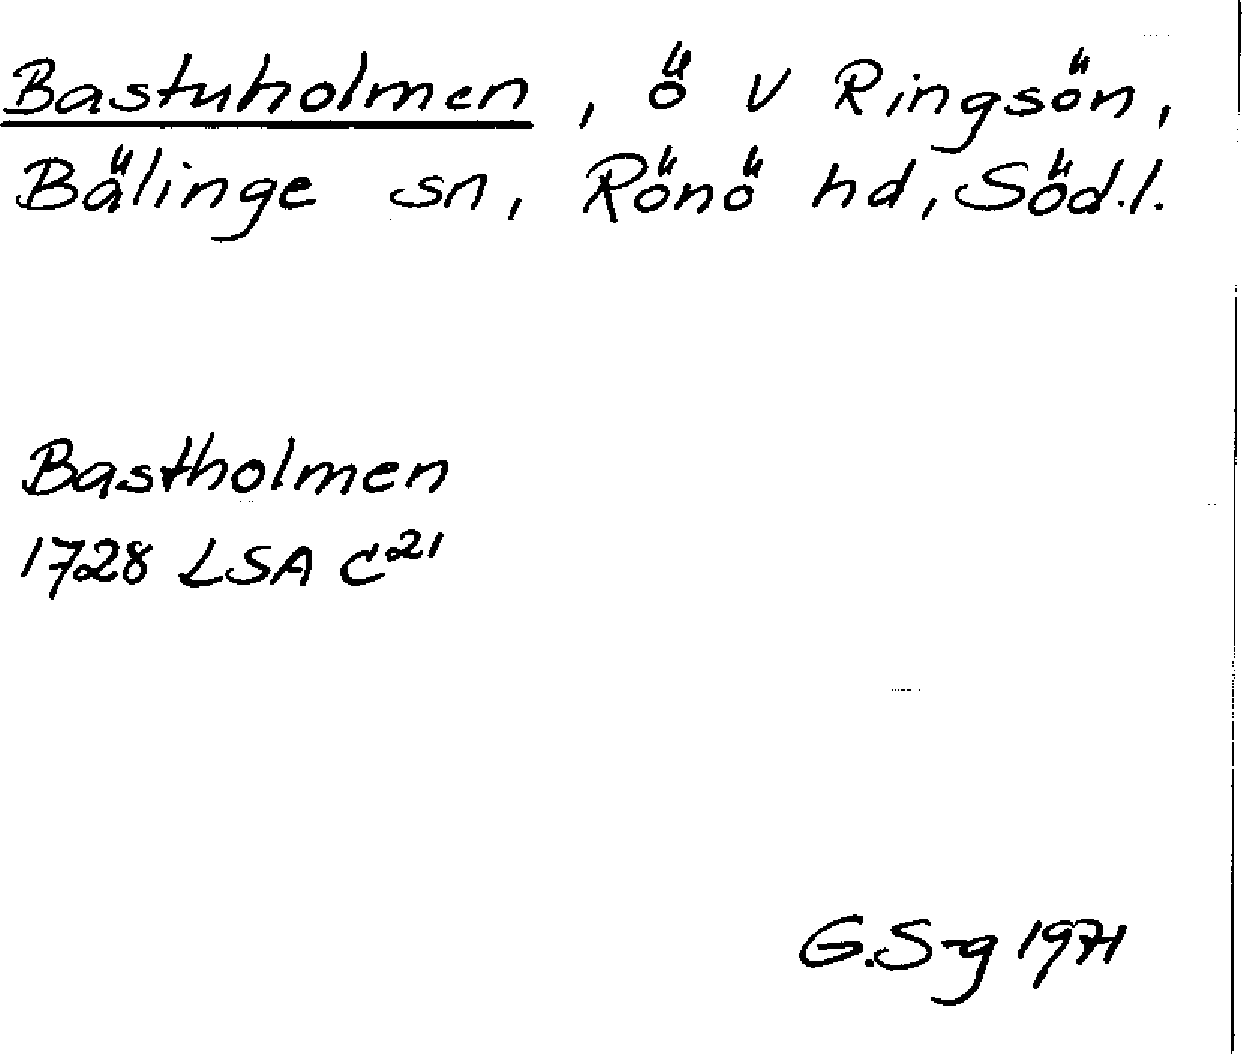 Bastuholmen, ö V Ringsön,
Bälinge sn, Rönö hd, Söd.l.
Bastholmen
1728 LSA C²¹
G.S-g 1971